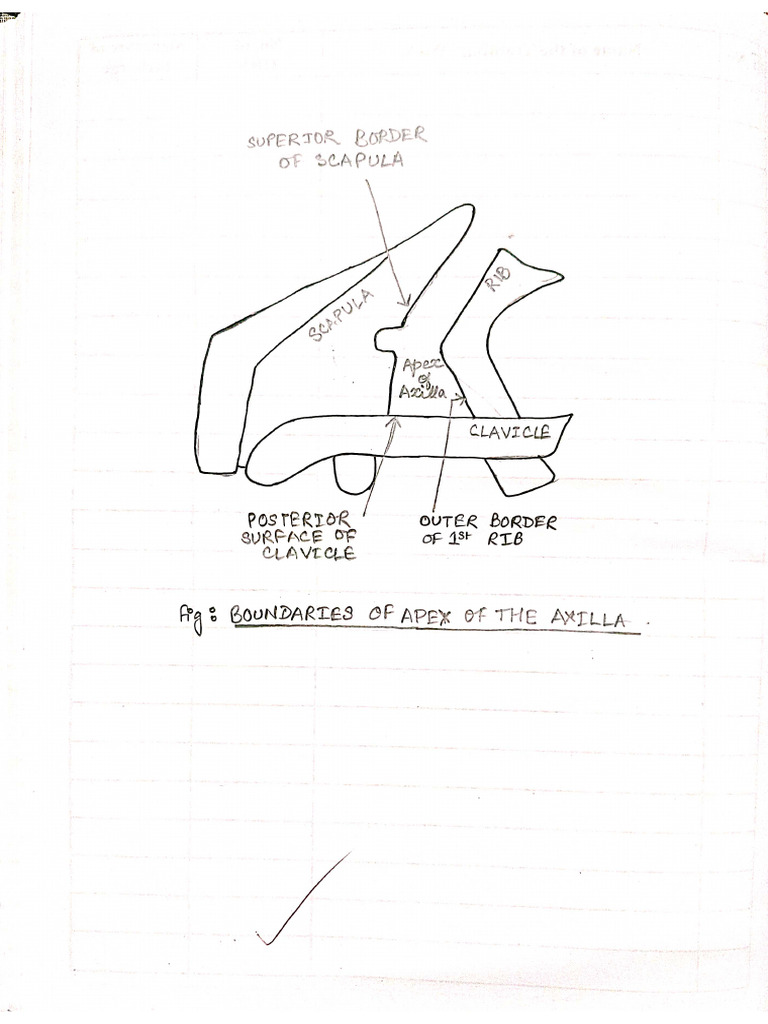 SUPERIOR BORDER
OF SCAPULA
SCAPULA
RIB
Apex
of
Axilla
CLAVICLE
POSTERIOR
SURFACE OF
CLAVICLE
OUTER BORDER
OF 1st RIB
Fig: BOUNDARIES OF APEX OF THE AXILLA.